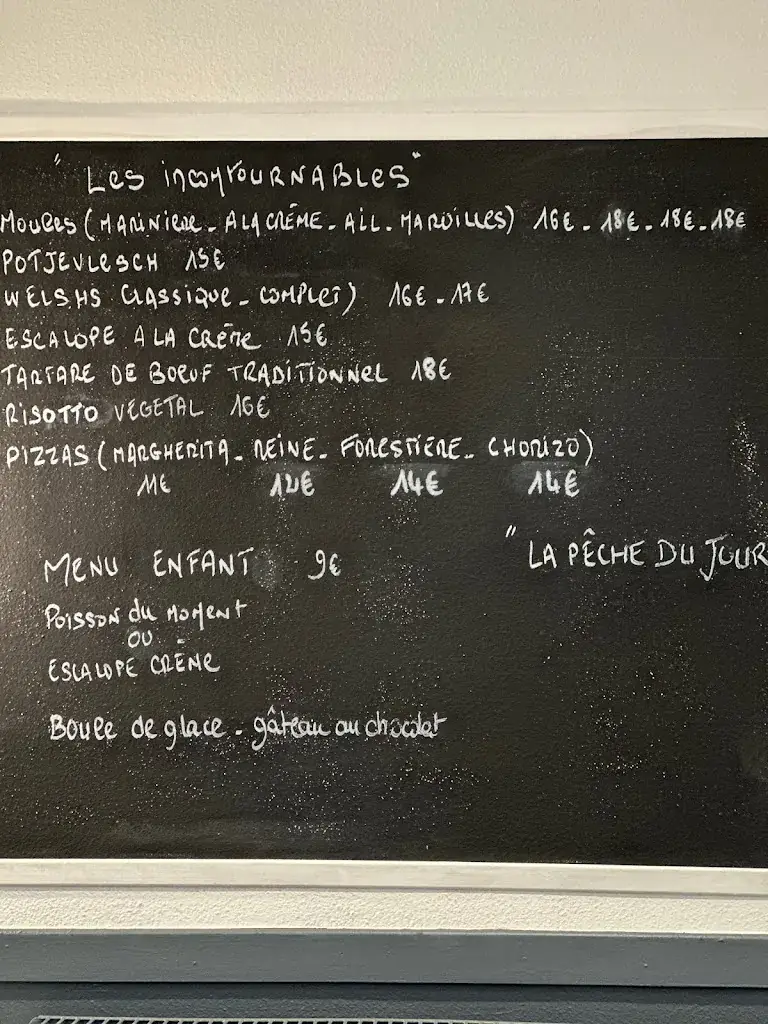 "Les incontournables"
Moules (Marinière - A la crème - Ail - Maroilles) 16€ - 18€ - 18€ - 18€
Potjevlesch 15€
Welshs classique - complet) 16€ - 17€
Escalope à la crème 15€
Tartare de boeuf traditionnel 18€
Risotto végétal 16€
Pizzas (Margherita - Reine - Forestière - Chorizo)
11€ 12€ 14€ 14€
Menu enfant 9€
" La pêche du jour
Poisson du moment
ou
Escalope crème
Boule de glace - gâteau au chocolat